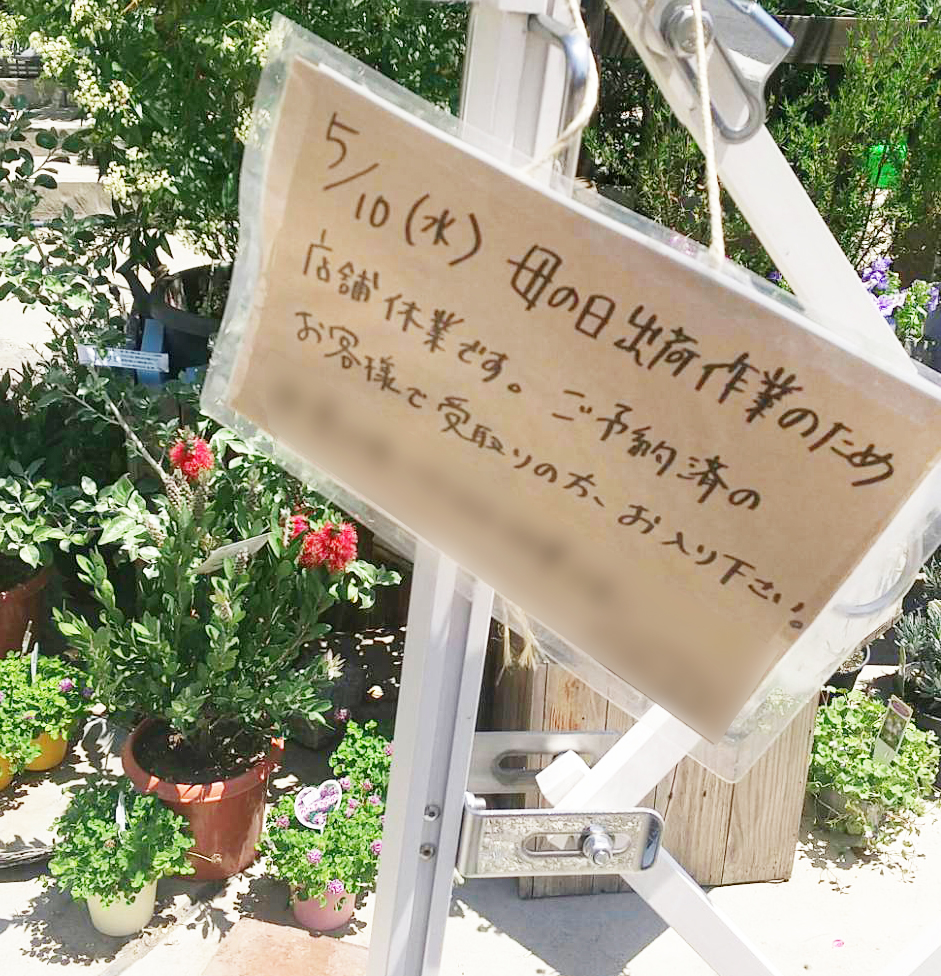 5/10(水) 母の日出荷作業のため
店舗休業です。ご予約済の
お客様で受取りの方、お入り下さい。